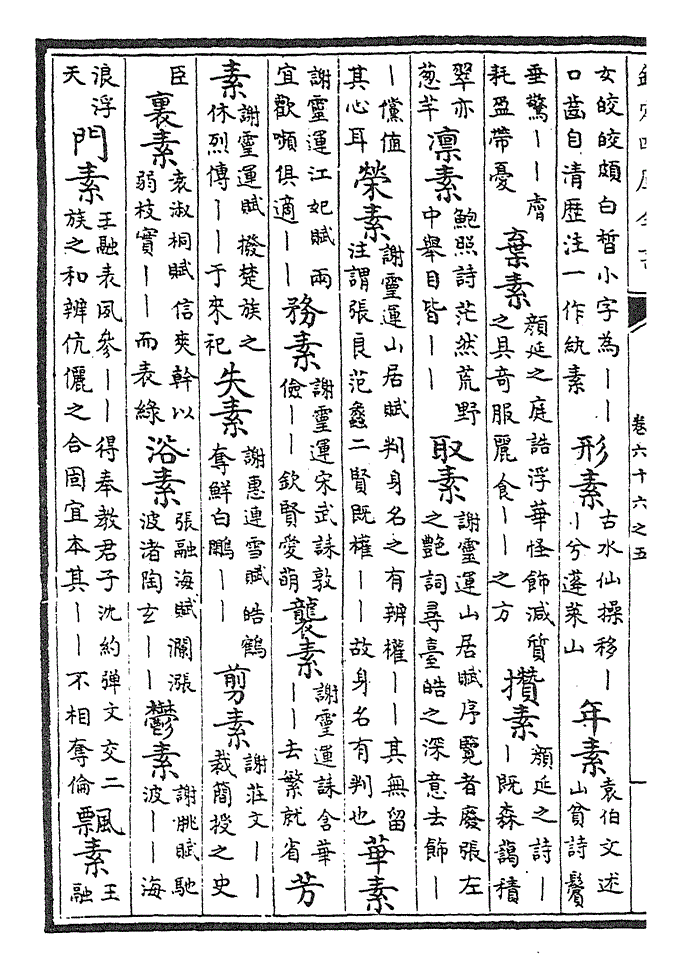 欽定四庫全書
卷六十六之五
女皎皎頗白皙小字為｜｜
口齒自清歷注一作紈素
形素
古水仙操移｜
｜兮蓬萊山
年素
袁伯文述
山貧詩鬢
垂驚｜｜齊
耗盈帶憂
棄素
顏延之庭誥浮華怪飾減質
之具奇服麗食｜｜之方
攢素
顏延之詩｜
｜既森藹積
翠亦
葱芊
凛素
鮑照詩茫然荒野
中舉目皆｜｜
取素
謝靈運山居賦序覽者廢張左
之艷詞尋臺皓之深意去飾｜
｜儻值
其心耳
榮素
謝靈運山居賦判身名之有辨權｜｜其無留
注謂張良范蠡二賢既權｜｜故身名有判也
華素
謝靈運江妃賦兩
宜歡嚬俱適｜｜
務素
謝靈運宋武誄敦
儉｜｜欽賢愛萌
襲素
謝靈運誄含華
｜｜去繁就省
芳
素
謝靈運賦撥楚族之
休烈傳｜｜于來祀
失素
謝惠連雪賦皓鶴
奪鮮白鷴｜｜
剪素
謝莊文｜｜
裁簡授之史
臣
裏素
袁淑桐賦信爽幹以
弱枝實｜｜而表綠
浴素
張融海賦瀾漲
波渚陶玄｜｜
鬱素
謝朓賦馳
波｜｜海
浪浮
天
門素
王融表夙參｜｜得奉教君子沈約彈文交二
族之和辨伉儷之合固宜本其｜｜不相奪倫
飄素
王
融